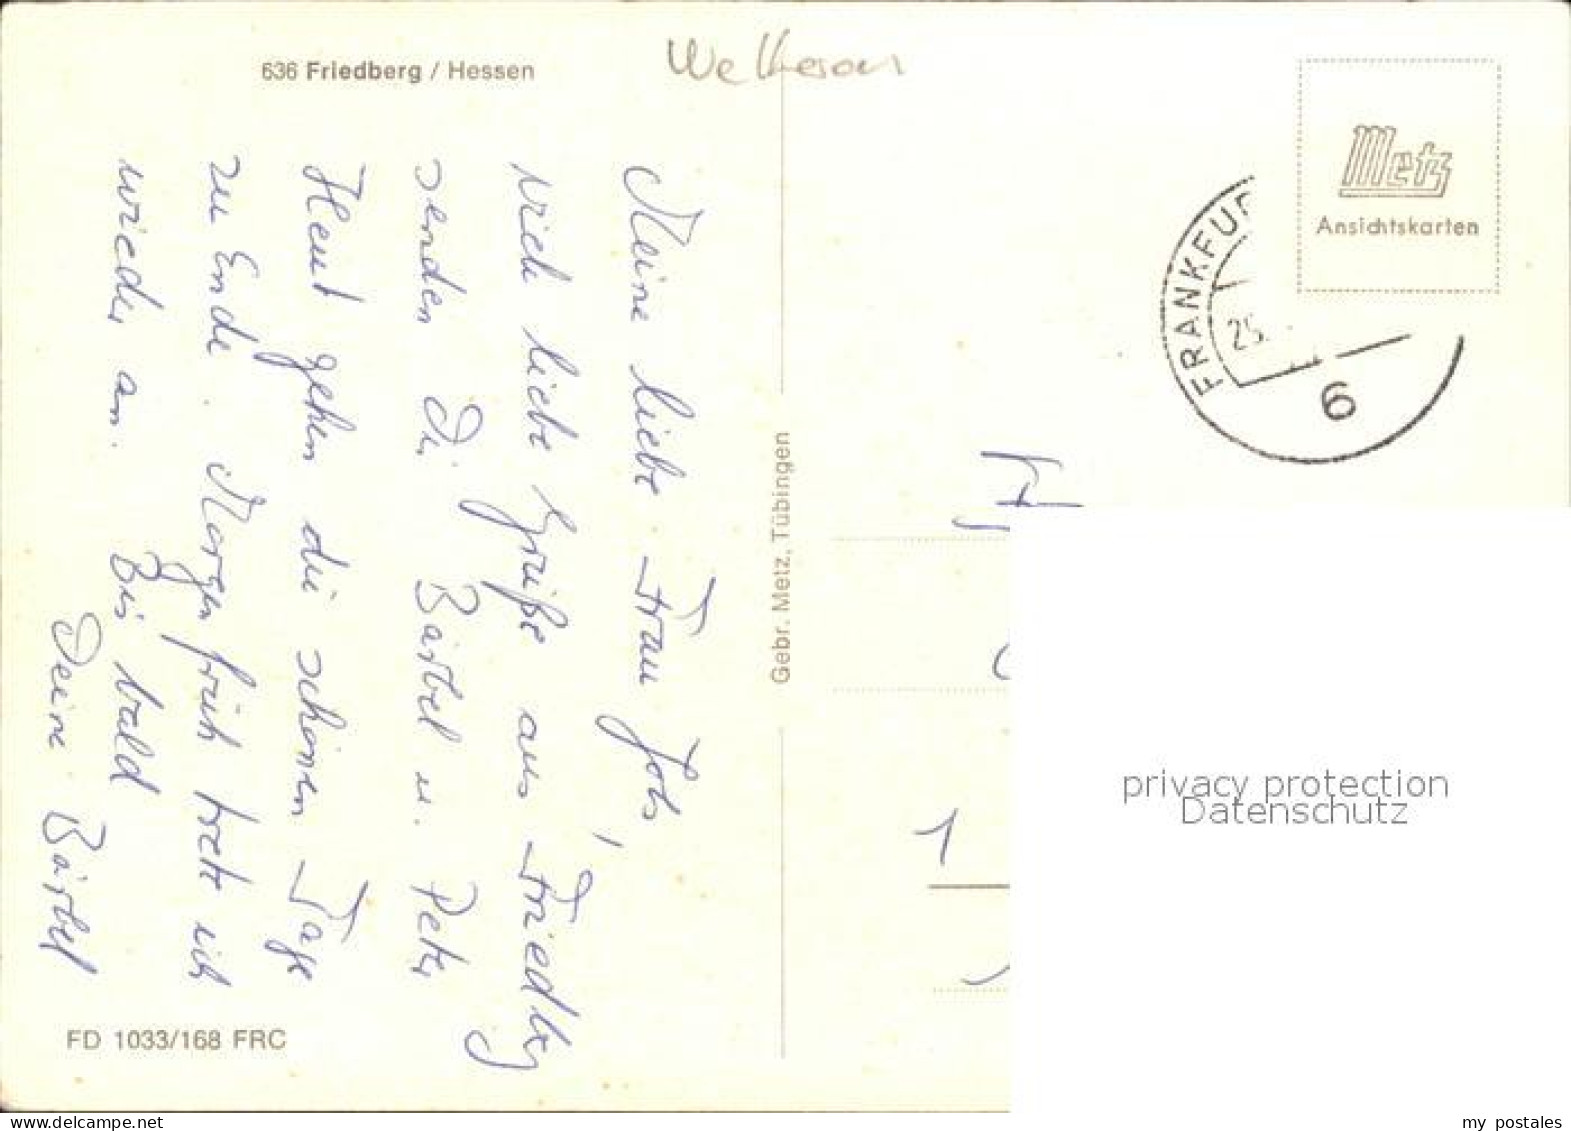 636 Friedberg / Hessen
Metz
Ansichtskarten
FRANKFUR
25.
6
Meine liebe Frau Jobs,
viele liebe Grüße aus Friedberg
senden Dir Bärbel u. Peter
Heut gehen die schönen Tage
zu Ende. Morgen früh trete ich
wieder an. Bis bald
Deine Bärbel
Gebr. Metz, Tübingen
1
privacy protection
Datenschutz
FD 1033/168 FRC
www.delcampe.net
my_postales